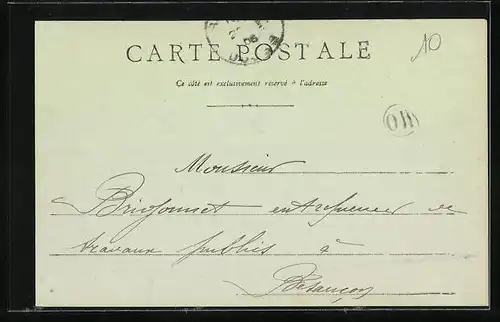 10
CARTE POSTALE
Ce côté est exclusivement réservé à l'adresse
OR
Monsieur
entrepreneur de
travaux publics à
Besançon